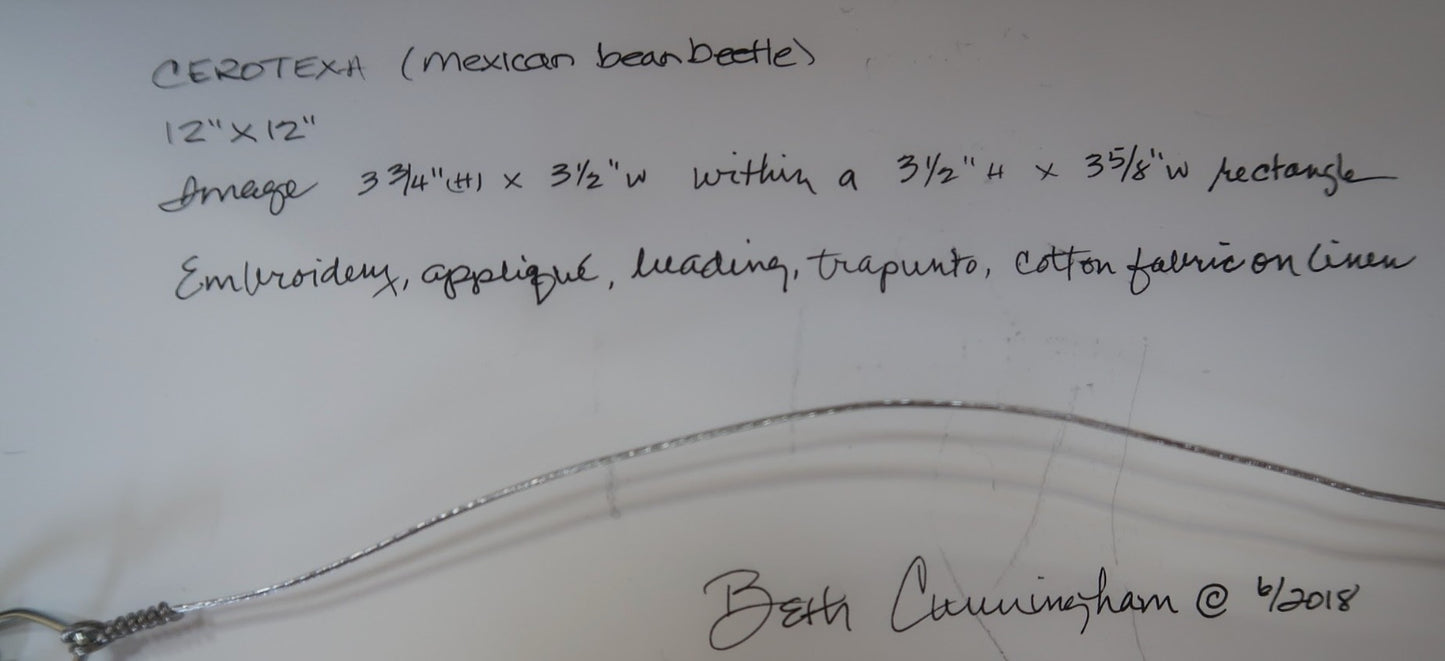 CEROTEXA (mexican bean beetle)
12" X 12"
Image 3 3/4" (H) x 3 1/2" w within a 3 1/2" H x 3 5/8" w rectangle
Embroidery, appliqué, beading, trapunto, cotton fabric on linen
Beth Cunningham @ 6/2018